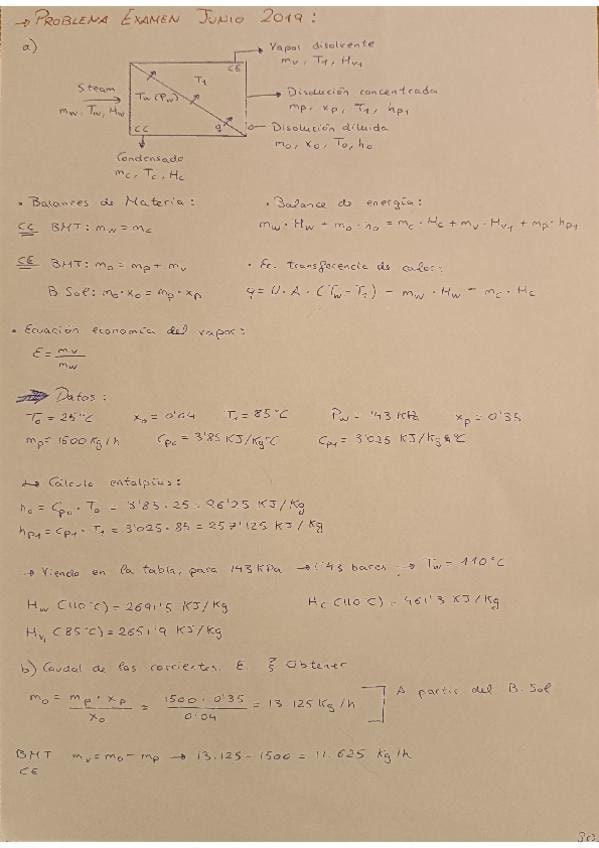 → PROBLEMA EXAMEN JUNIO 2019:
a)
Vapor disolvente
mv, T1, Hv1
CE
T1
Steam
Tw (Pw)
mw, Tw, Hw
Disolución concentrada
mp, xp, T1, hp1
CC
q
Disolución diluida
mo, xo, To, ho
Condensado
mc, Tc, Hc
• Balances de Materia:
• Balance de energía:
CC BMT: mw = mc
mw · Hw + mo · ho = mc · Hc + mv · Hv1 + mp · hp1
CE BMT: mo = mp + mv
• Ec. transferencia de calor:
B Sol: mo · xo = mp · xp
q = U · A · (Tw - T1) = mw · Hw - mc · Hc
• Ecuación economía del vapor:
E = mv / mw
Datos:
To = 25°C xo = 0'04 T1 = 85°C Pw = 143 KPa xp = 0'35
mp = 1500 Kg/h Cpo = 3'85 KJ/Kg°C Cp1 = 3'025 KJ/Kg°C
↳ Cálculo entalpías:
ho = Cpo · To = 3'85 · 25 = 96'25 KJ/Kg
hp1 = Cp1 · T1 = 3'025 · 85 = 257'125 KJ/Kg
→ Viendo en la tabla, para 143 KPa → 1'43 bares → Tw = 110°C
Hw (110°C) = 2691'5 KJ/Kg Hc (110°C) = 461'3 KJ/Kg
Hv1 (85°C) = 2651'9 KJ/Kg
b) Caudal de las corrientes. E. ξ Obtener
mo = mp · xp / xo = 1500 · 0'35 / 0'04 = 13.125 Kg/h A partir del B. Sol
BMT mv = mo - mp → 13.125 - 1500 = 11.625 Kg/h
CE